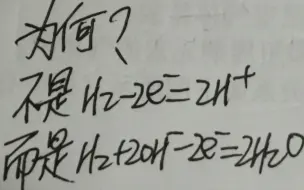 为何?
不是H₂-2e⁻=2H⁺
而是H₂+2OH⁻-2e⁻=2H₂O